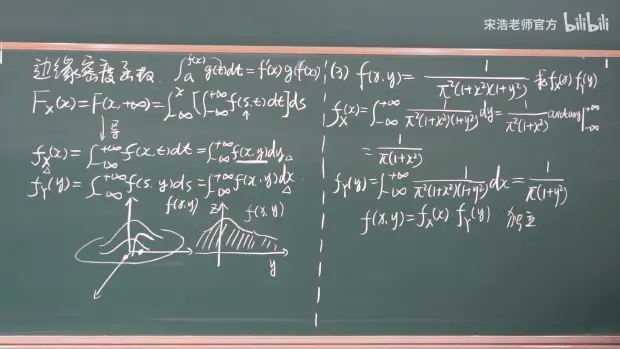 宋浩老师官方 bilibili
边缘密度函数 ∫_a^{f(x)} g(t)dt = f'(x) g(f(x))
F_X(x) = F(x, +∞) = ∫_{-∞}^{x} [∫_{-∞}^{+∞} f(s, t) dt] ds
↓ 导
f_X(x) = ∫_{-∞}^{+∞} f(x, t) dt = ∫_{-∞}^{+∞} f(x, y) dy
f_Y(y) = ∫_{-∞}^{+∞} f(s, y) ds = ∫_{-∞}^{+∞} f(x, y) dx
f(x, y) z f(x, y)
y
(3) f(x, y) = 1/(π²(1+x²)(1+y²)) 求 f_X(x) f_Y(y)
f_X(x) = ∫_{-∞}^{+∞} 1/(π²(1+x²)(1+y²)) dy = 1/(π²(1+x²)) arctany |_{-∞}^{+∞}
= 1/(π(1+x²))
f_Y(y) = ∫_{-∞}^{+∞} 1/(π²(1+x²)(1+y²)) dx = 1/(π(1+y²))
f(x, y) = f_X(x) f_Y(y) 独立